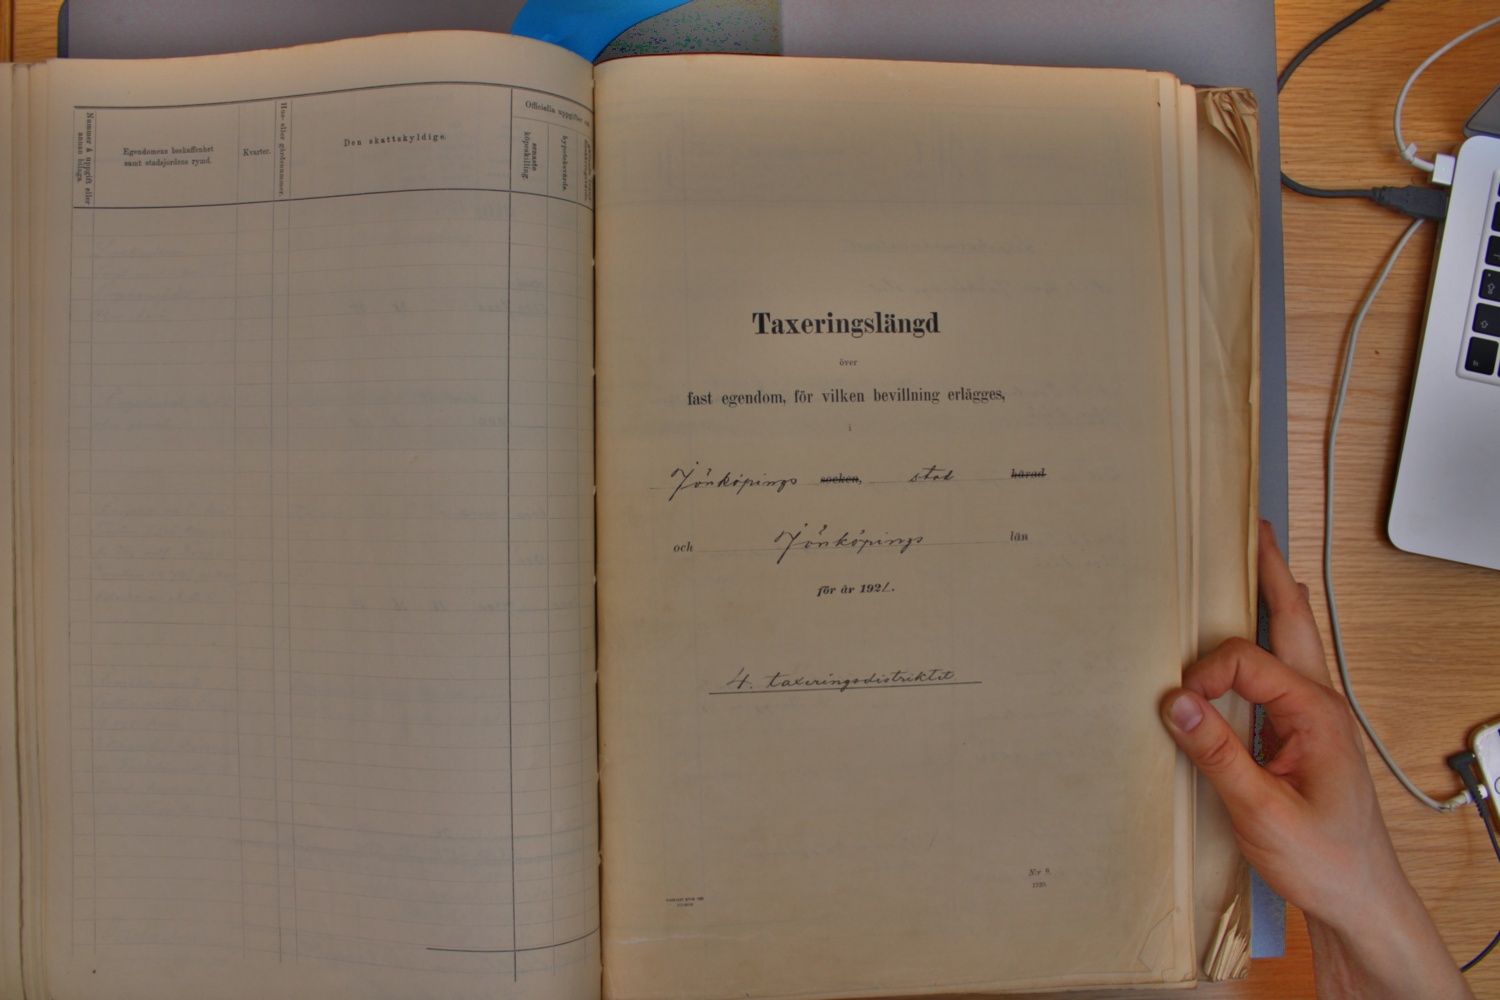 Nummer å uppgift eller annan bilaga.
Egendomens beskaffenhet samt stadsjordens rymd.
Kvarter.
Hus- eller gårdsnummer.
Den skattskyldige.
Officiella uppgifter
senaste köpeskilling.
hypoteksvärde.
Taxeringslängd
över
fast egendom, för vilken bevillning erlägges,
i
Jönköpings socken, stad härad
och Jönköpings län
för år 1921.
4. taxeringsdistriktet
N:r 9.
1920.